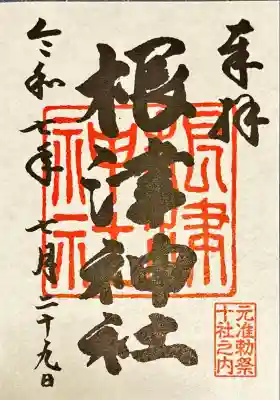 奉拝
根津神社
令和七年七月二十九日
根津神社
元准勅祭
十社之内